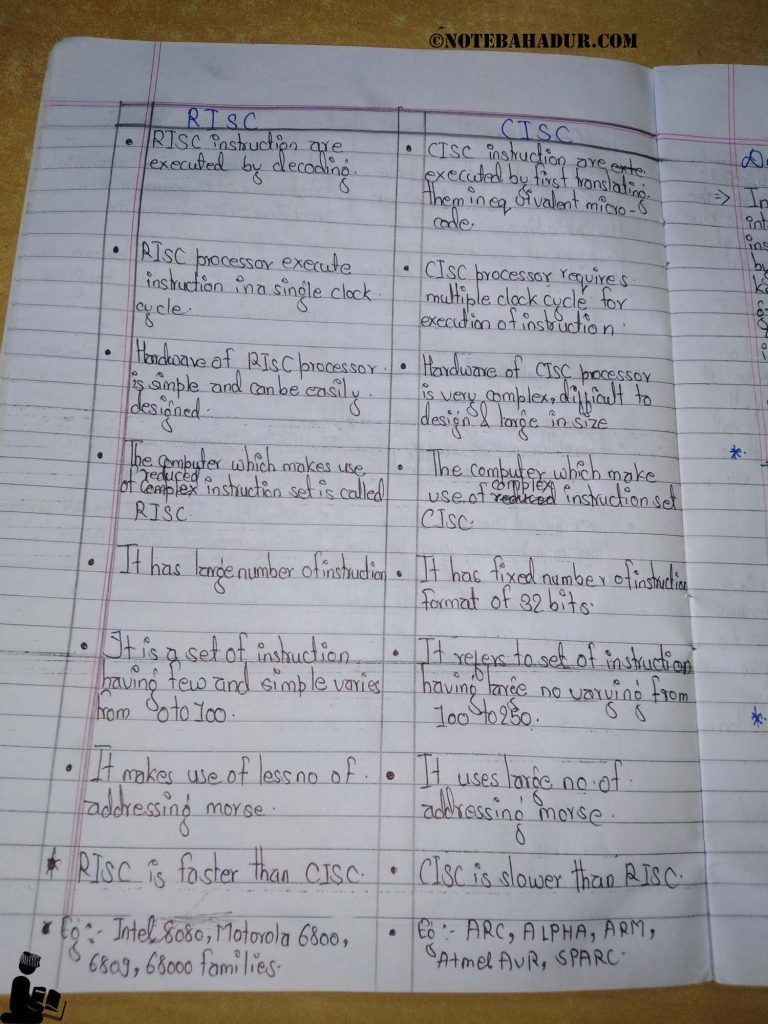 ©NOTEBAHADUR.COM
RISC
• RISC instruction are
executed by decoding.
• RISC processor execute
instruction in a single clock
cycle.
• Hardware of RISC processor
is simple and can be easily
designed.
• The computer which makes use
reduced
of complex instruction set is called
RISC.
• It has large number of instruction
• It is a set of instruction
having few and simple varies
from 0 to 100.
• It makes use of less no of
addressing morse.
* RISC is faster than CISC.
• Eg :- Intel 8080, Motorola 6800,
6809, 68000 families.
CISC
• CISC instruction are exte
executed by first translating
them in eq ofvalent micro-
code.
• CISC processor requires
multiple clock cycle for
execution of instruction.
• Hardware of CISC processor
is very complex, difficult to
design & large in size
• The computer which make
complex
use of reduced instruction set
CISC.
• It has fixed number of instruction
format of 32 bits.
• It refers to set of instruction
having large no varying from
100 to 250.
• It uses large no. of
addressing morse.
• CISC is slower than RISC.
• Eg :- ARC, ALPHA, ARM,
Atmel AVR, SPARC.
⇒ In
int
ins
by
*
*